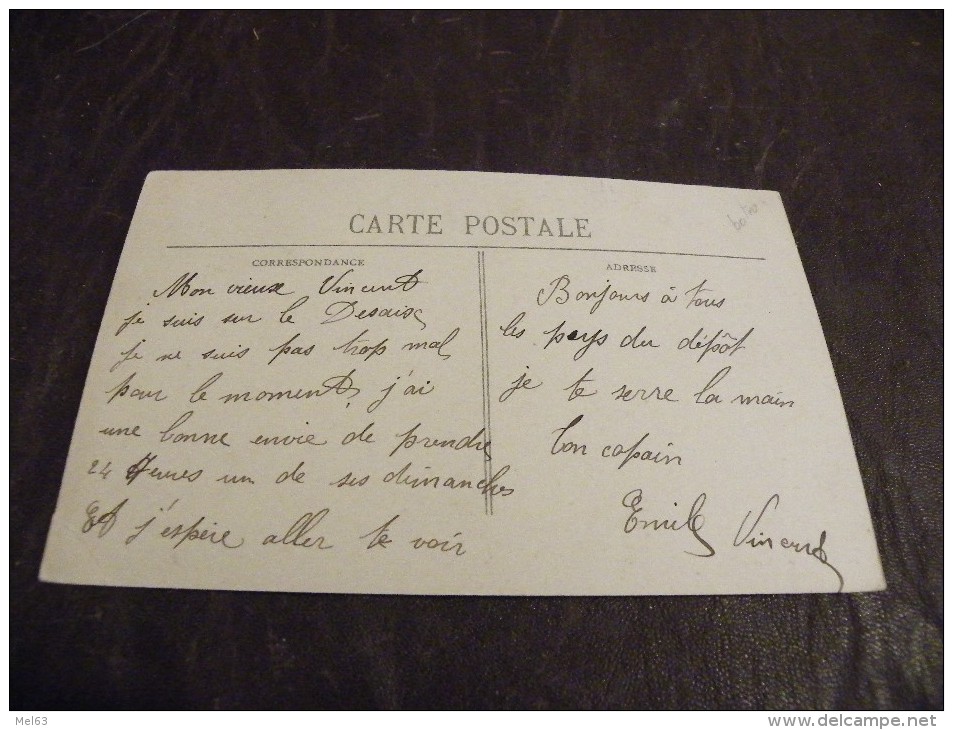 CARTE POSTALE
CORRESPONDANCE
Mon vieux Vincent
je suis sur le Desaix
je ne suis pas trop mal
pour le moment, j'ai
une bonne envie de prendre
24 Heures un de ses dimanches
Et j'espère aller te voir
ADRESSE
Bonjours à tous
les pays du dépôt
je te serre la main
ton copain
Emile Vincent
Mel63
www.delcampe.net